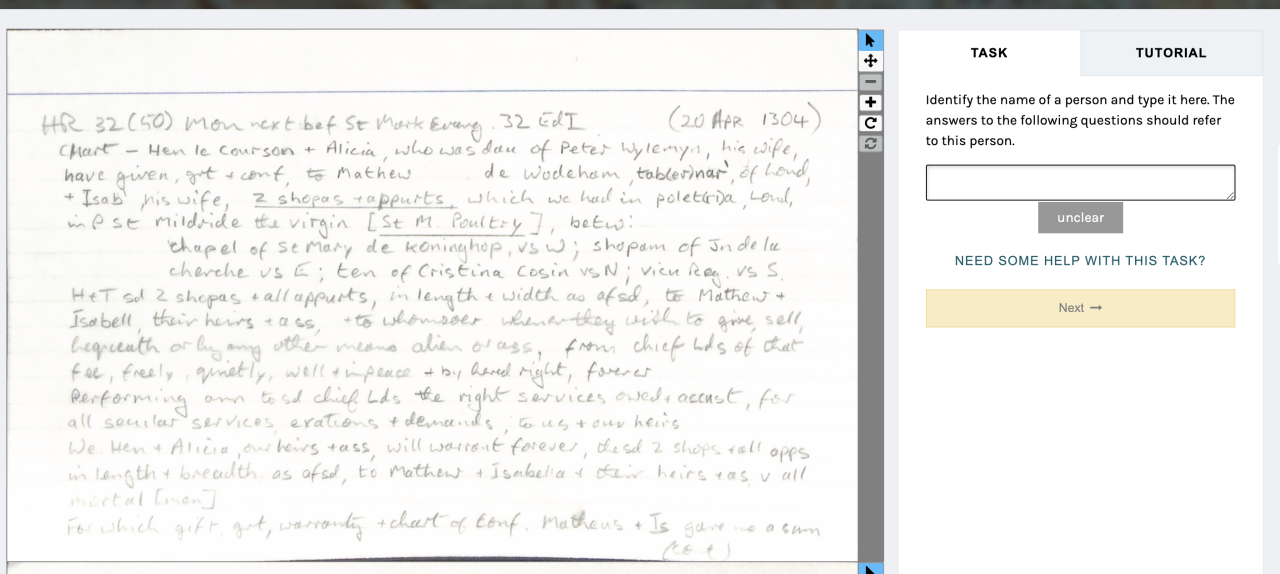 HR 32(50) Mon next bef St Mark Evang. 32 Ed I (20 APR 1304)
Chart – Hen le Courson + Alicia, who was dau of Peter Wylemyn, his wife,
have given, grt + conf, to Mathew de Wodeham, tab(er)nar', of Lond,
+ Isab' his wife, 2 shopas + appurts, which we had in polet(ri)a, Lond,
in P St Mildride the virgin [St M. Poultry], betw:
chapel of St Mary de Koninghop, vs W; shopam of Jn de la
cherche vs E; ten of Cristina Cosin vs N; vicu Reg. vs S.
H+T sd 2 shopas + all appurts, in length + width as afsd, to Mathew +
Isabell, their heirs + ass, + to whomsoer whenever they wish to give, sell,
bequeath or by any other means alien or ass, from chief Lds of that
fee, freely, quietly, well + in peace + by hered right, forever
Performing ann to sd chief Lds the right services owed + accust, for
all secular services, exations + demands, to us + our heirs
We. Hen + Alicia, our heirs + ass, will warrant forever, the sd 2 shops + all apps
in length + breadth as afsd, to Mathew + Isabella + their heirs + as v all
mortal [men]
For which gift, grt, warranty + chart of conf. Matheus + Is gave us a sum
(cont)
TASK
TUTORIAL
Identify the name of a person and type it here. The
answers to the following questions should refer
to this person.
unclear
NEED SOME HELP WITH THIS TASK?
Next →